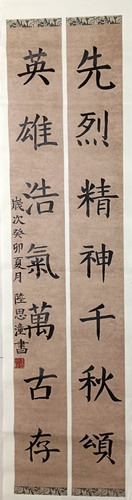 先烈精神千秋頌
英雄浩氣萬古存
歲次癸卯夏月 陸思潼書